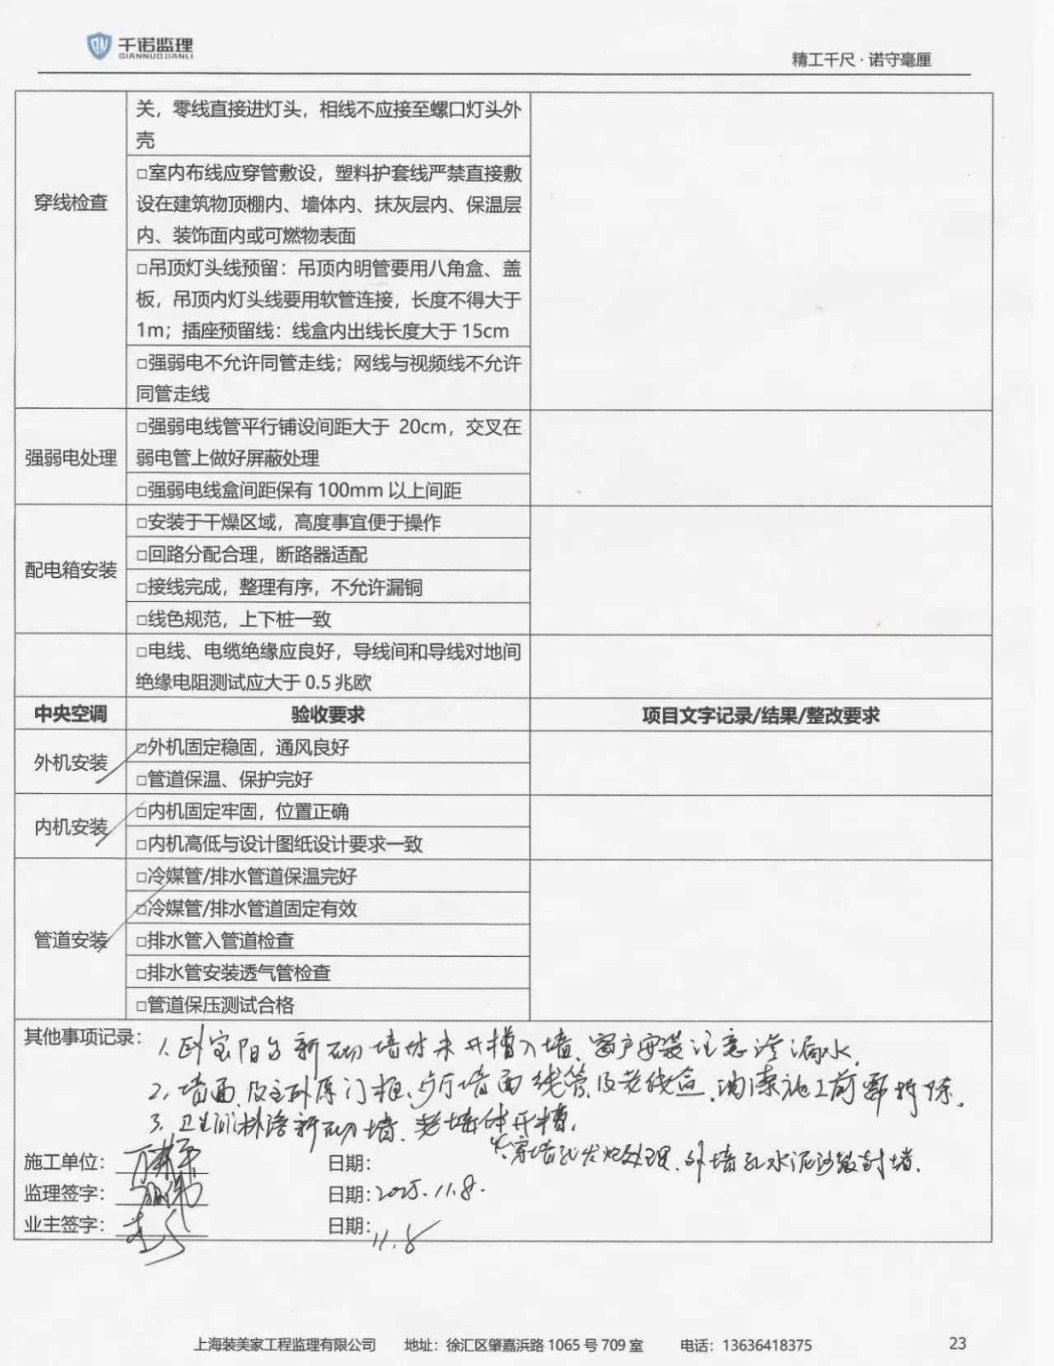 千诺监理
QIANNUOJIANLI
精工千尺·诺守毫厘
关，零线直接进灯头，相线不应接至螺口灯头外
壳
穿线检查
□室内布线应穿管敷设，塑料护套线严禁直接敷
设在建筑物顶棚内、墙体内、抹灰层内、保温层
内、装饰面内或可燃物表面
□吊顶灯头线预留：吊顶内明管要用八角盒、盖
板，吊顶内灯头线要用软管连接，长度不得大于
1m；插座预留线：线盒内出线长度大于15cm
□强弱电不允许同管走线；网线与视频线不允许
同管走线
强弱电处理
□强弱电线管平行铺设间距大于 20cm，交叉在
弱电管上做好屏蔽处理
□强弱电线盒间距保有100mm以上间距
配电箱安装
□安装于干燥区域，高度事宜便于操作
□回路分配合理，断路器适配
□接线完成，整理有序，不允许漏铜
□线色规范，上下桩一致
□电线、电缆绝缘应良好，导线间和导线对地间
绝缘电阻测试应大于0.5兆欧
中央空调 验收要求 项目文字记录/结果/整改要求
外机安装
□外机固定稳固，通风良好
□管道保温、保护完好
内机安装
□内机固定牢固，位置正确
□内机高低与设计图纸设计要求一致
管道安装
□冷媒管/排水管道保温完好
□冷媒管/排水管道固定有效
□排水管入管道检查
□排水管安装透气管检查
□管道保压测试合格
其他事项记录：
1.卧室阳台新砌墙体未开槽入墙，窗户安装注意渗漏水.
2.墙面及主卧原门框，步厅墙面线管及老线盒，油漆施工前需拆除.
3.卫生间淋浴新砌墙，老墙体开槽.
4.穿墙孔发泡处理，外墙孔水泥沙浆封堵.
施工单位： 日期：
监理签字： 日期：2025.11.8.
业主签字： 日期：11.8
上海装美家工程监理有限公司 地址：徐汇区肇嘉浜路1065号709室 电话：13636418375 23